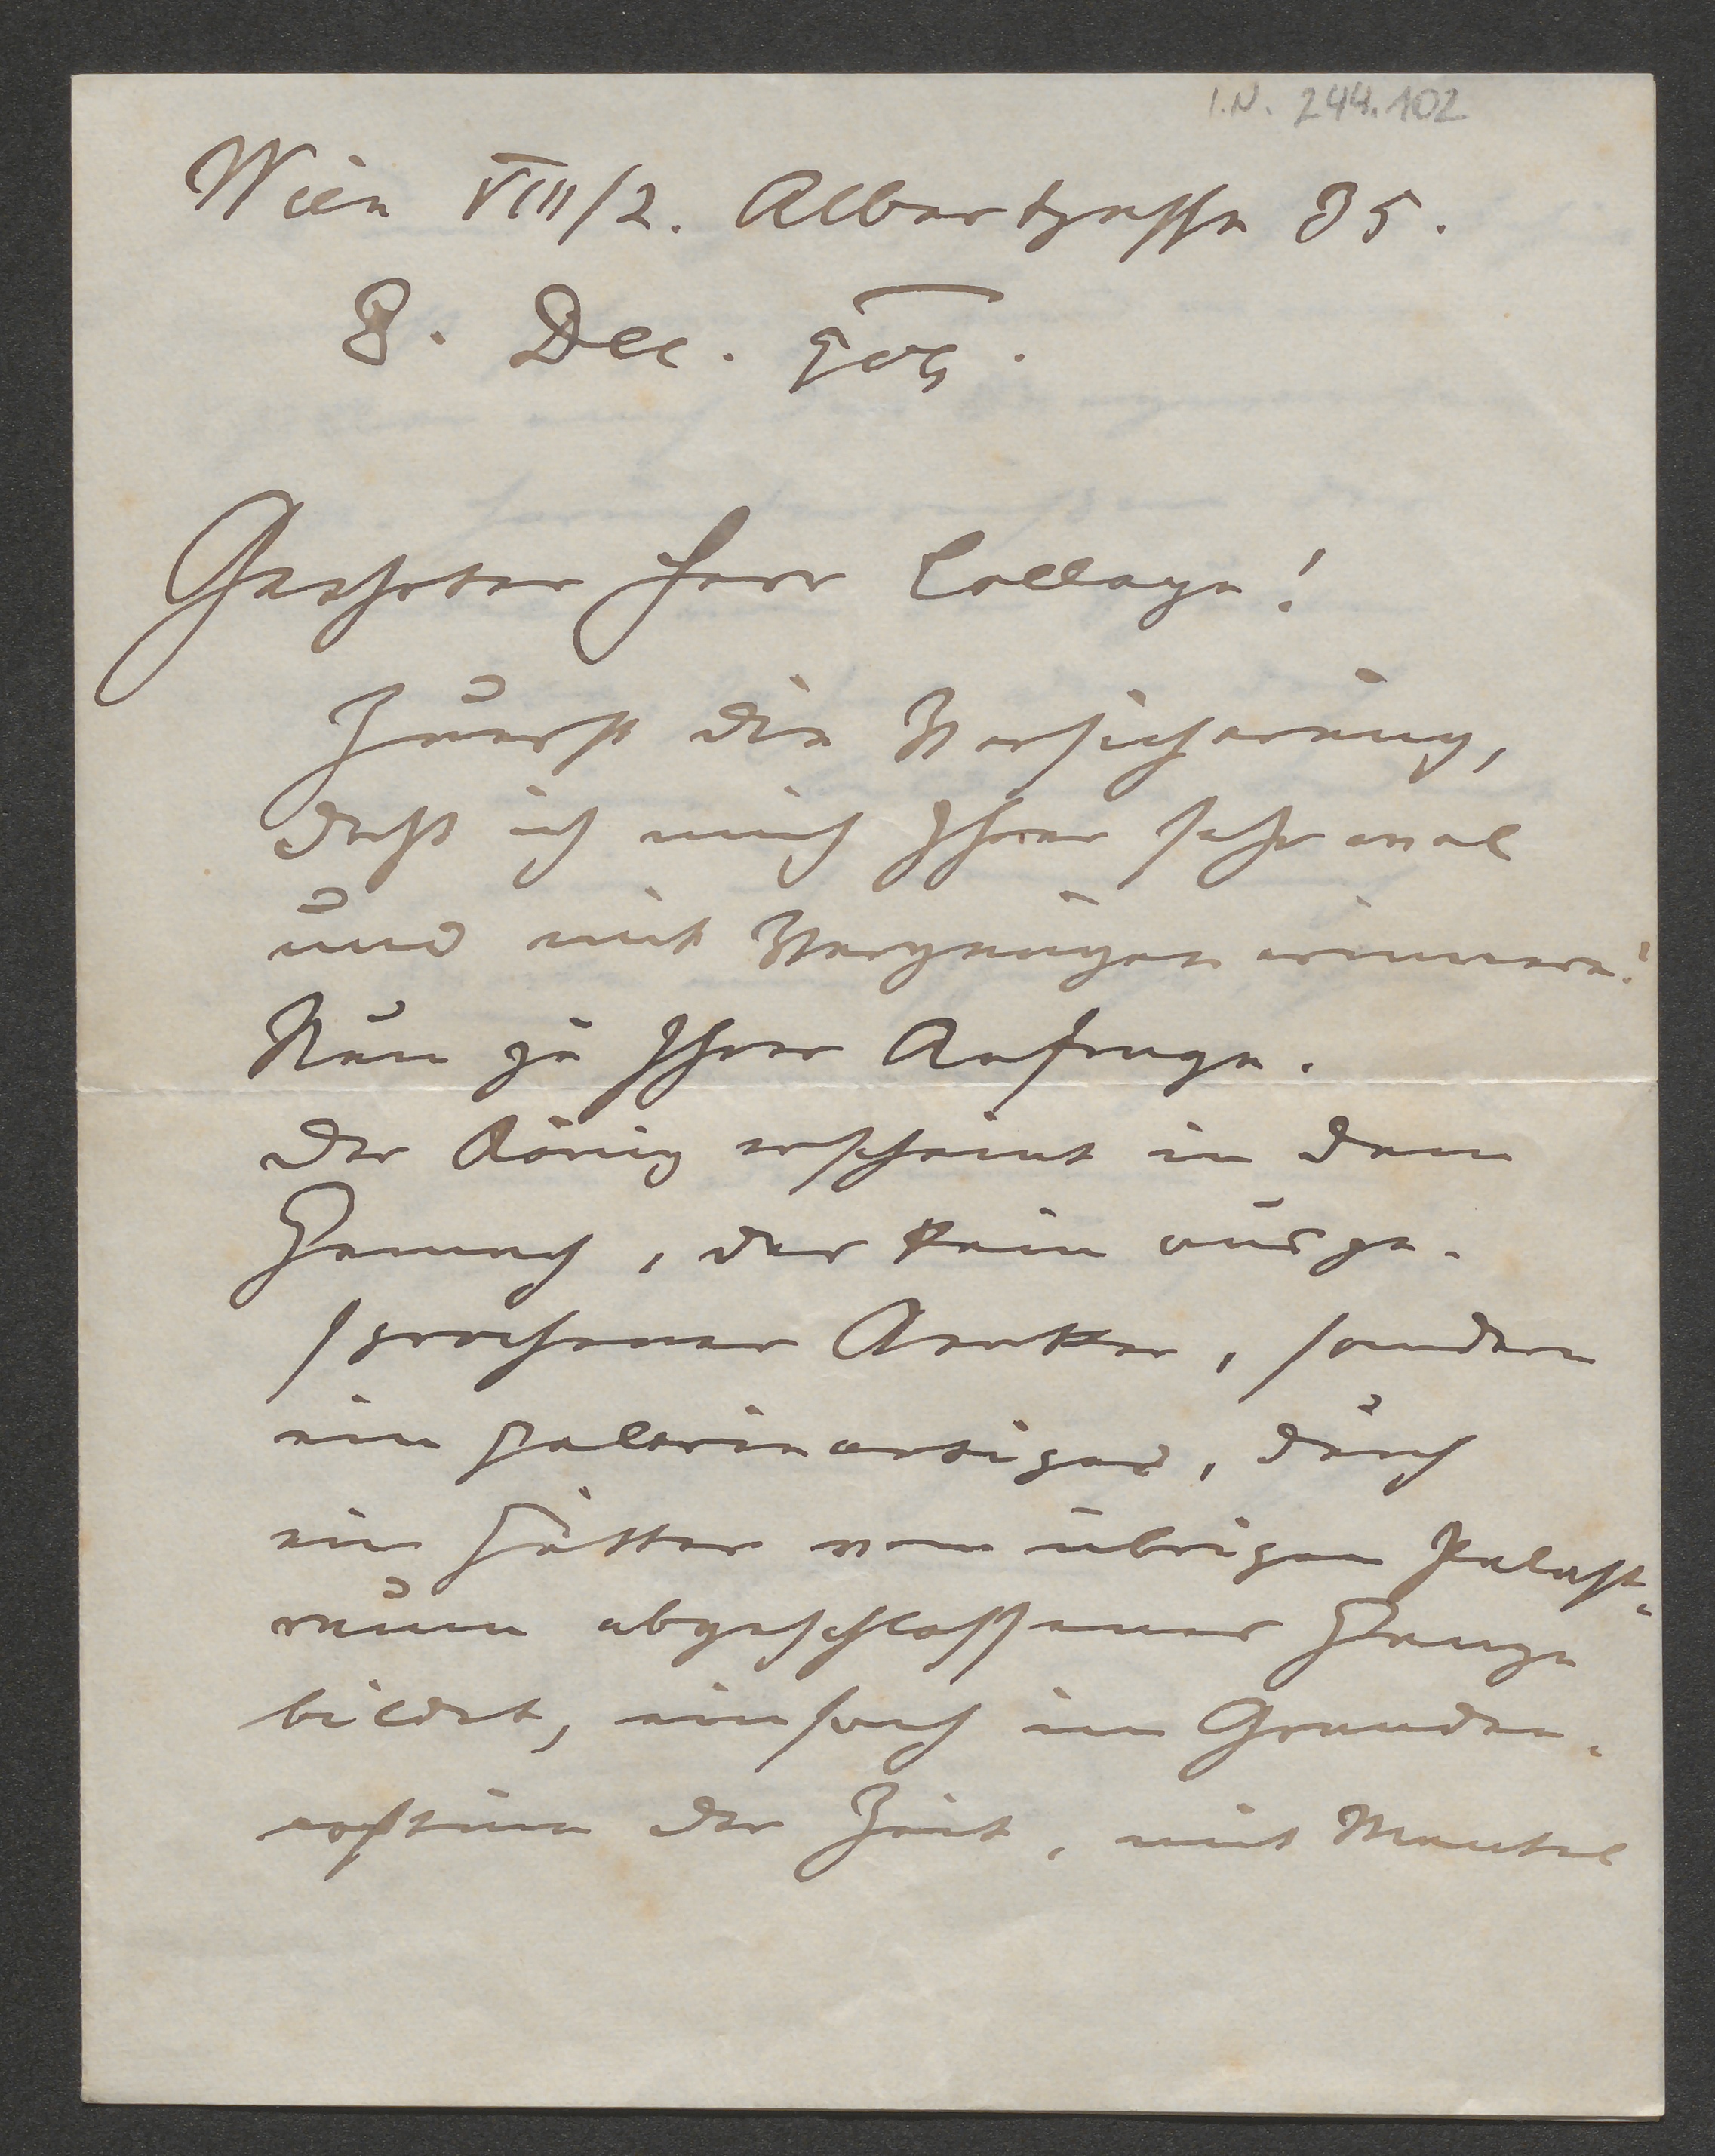 I.N. 244.102
Wien VIII/2. Albertgasse 35.
8. Dec.
Geehrter Herr College!
Zuerst die Versicherung,
daß ich mich Ihrer sehr wol
und mit Vergnügen erinnere!
Nun zu Ihrer Anfrage.
Der König erscheint in dem
Gemach, das kein ausge-
sprochener, sondern
ein galerieartiges, durch
ein Gitter vom übrigen Palast-
raum abgeschlossenes Ganze
bildet, einfach im Granden-
costüm der Zeit, mit Mantel